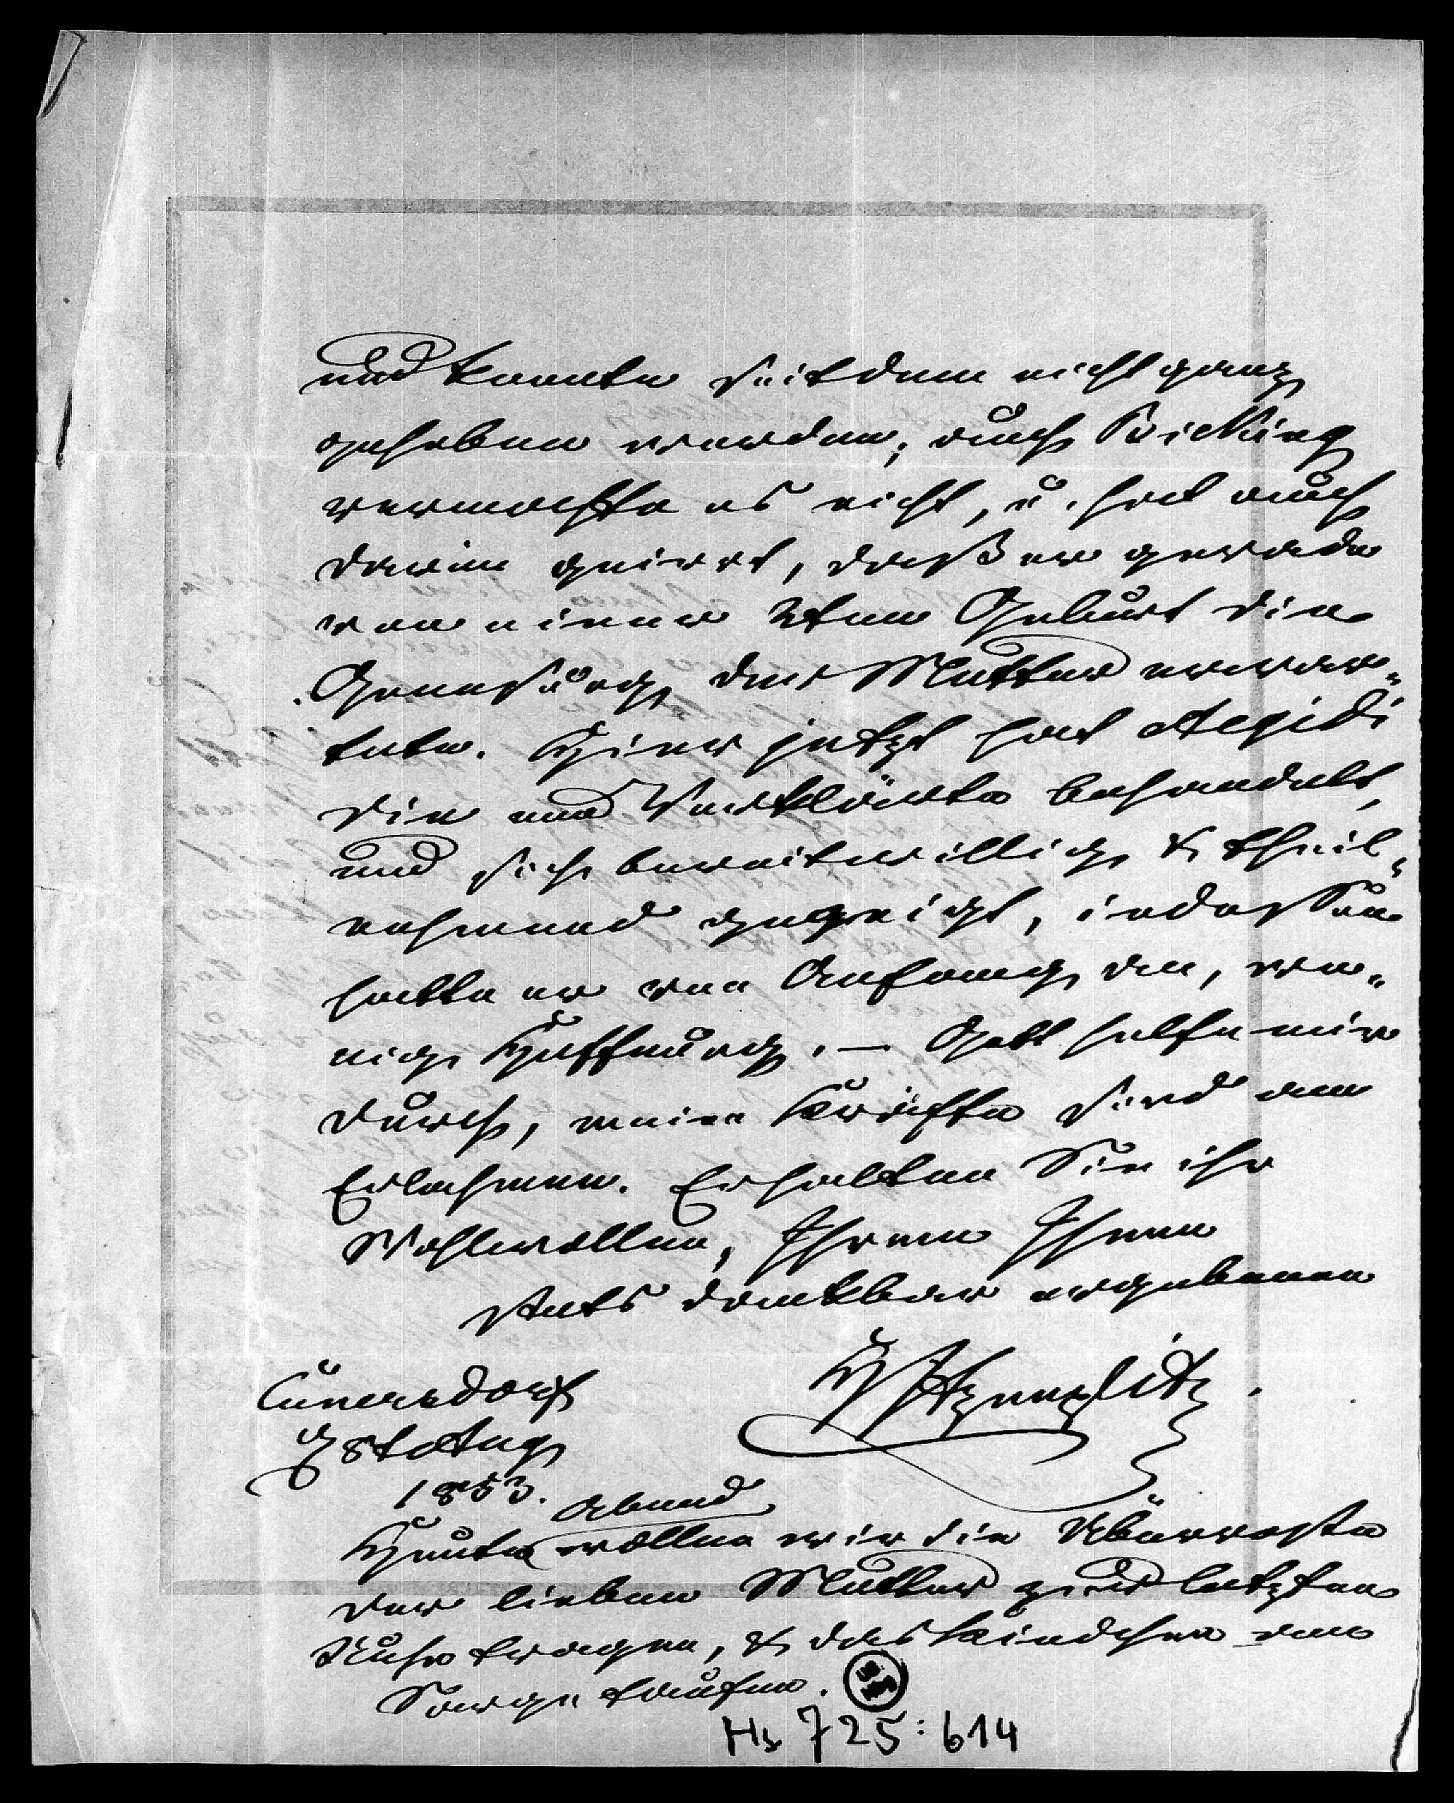 und konnte seitdem nicht ganz
gehoben werden; auch Kicking
vermochte es nicht, u. hat auch
darin geirrt, daß er gerade
von einer 2ten Geburt die
Genesung der Mutter erwar-
tete. Hier jetzt hat Aegidi
die nun Verklärte behandelt,
und sich bereitwillig & theil-
nehmend gezeigt, indessen
hatte er von Anfang an, we-
nig Hoffnung. — Gott helfe mir
durch, meine Kräfte sind am
Erlahmen. Erhalten Sie ihr
Wohlwollen, Ihrem Ihnen
stets dankbar ergebenen
Itzenplitz.
Cunersdorf
Aug
1853.
Heute Abend wollen wir die Überreste
der lieben Mutter zur letzten
Ruhe tragen, & das Kindchen am
Sarge taufen.
Hs 725:614